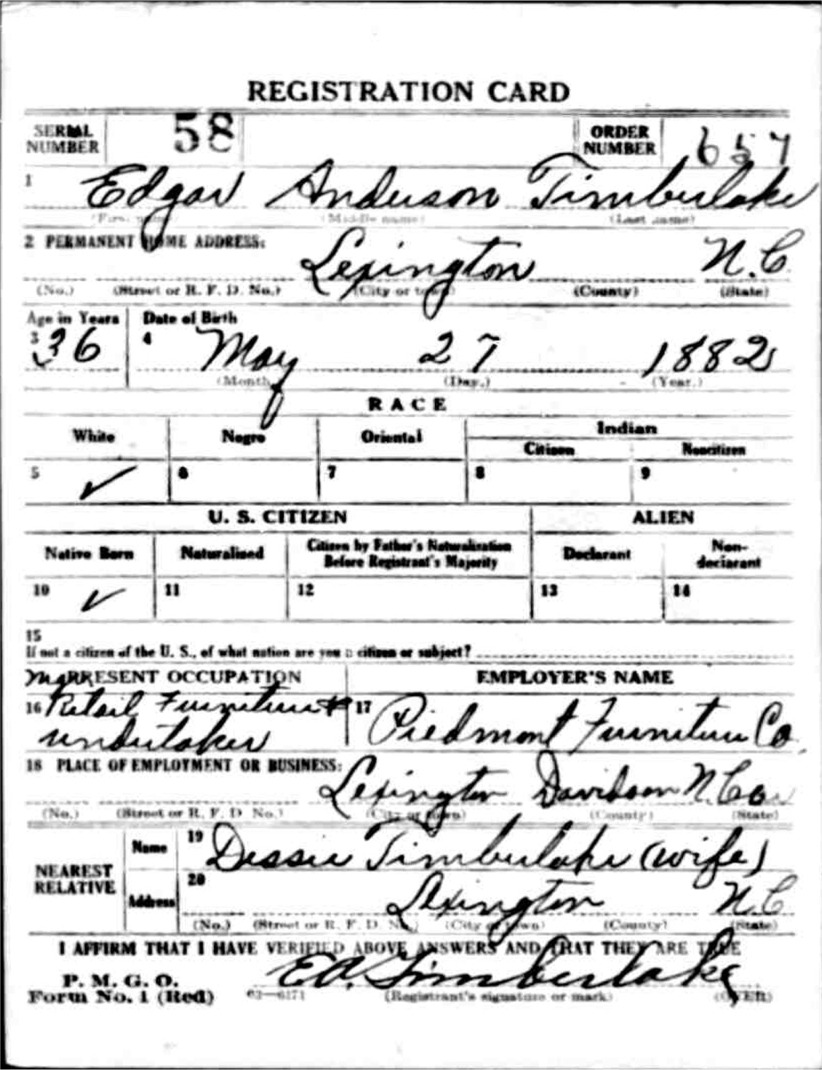 REGISTRATION CARD
SERIAL NUMBER 58 ORDER NUMBER 657
1 Edgar Anderson Timberlake
(First name) (Middle name) (Last name)
2 PERMANENT HOME ADDRESS:
Lexington N.C.
(No.) (Street or R. F. D. No.) (City or town) (County) (State)
Age in Years Date of Birth
3 36 4 May 27 1882
(Month) (Day.) (Year.)
RACE
White Negro Oriental Indian
Citizen Noncitizen
5 ✓ 6 7 8 9
U. S. CITIZEN ALIEN
Native Born Naturalized Citizen by Father's Naturalization Before Registrant's Majority Declarant Non-declarant
10 ✓ 11 12 13 14
15
If not a citizen of the U. S., of what nation are you a citizen or subject?
PRESENT OCCUPATION EMPLOYER'S NAME
16 Retail Furniture & 17 Piedmont Furniture Co
undertaker
18 PLACE OF EMPLOYMENT OR BUSINESS:
Lexington Davidson N.C.
(No.) (Street or R. F. D. No.) (City or town) (County) (State)
NEAREST RELATIVE
Name 19 Dessie Timberlake (wife)
Address 20 Lexington N.C.
(No.) (Street or R. F. D. No.) (City or town) (County) (State)
I AFFIRM THAT I HAVE VERIFIED ABOVE ANSWERS AND THAT THEY ARE TRUE
P. M. G. O.
Form No. 1 (Red) 03—6171 E A Timberlake
(Registrant's signature or mark) (OVER)